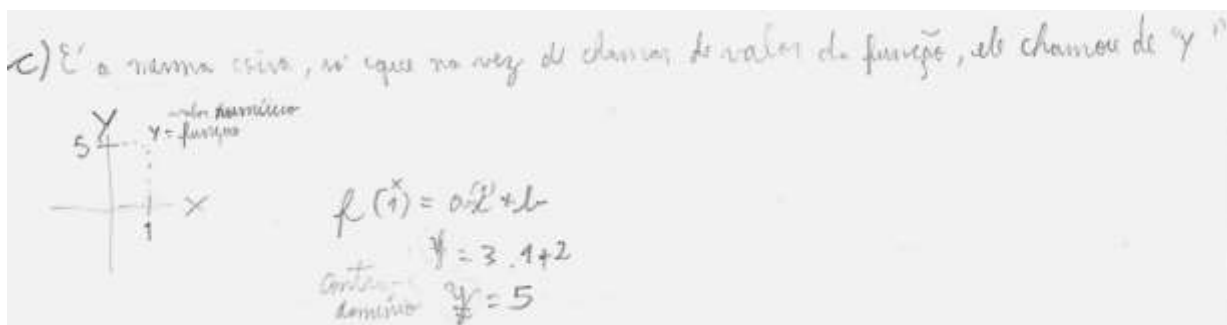 c) É a mesma coisa, só que na vez de chamar de valor da função, ele chamou de "y"
Y valor numérico
5 y = função
X
1
x
f(1) = a.(1) + b
y = 3.1+2
contra-
domínio y = 5